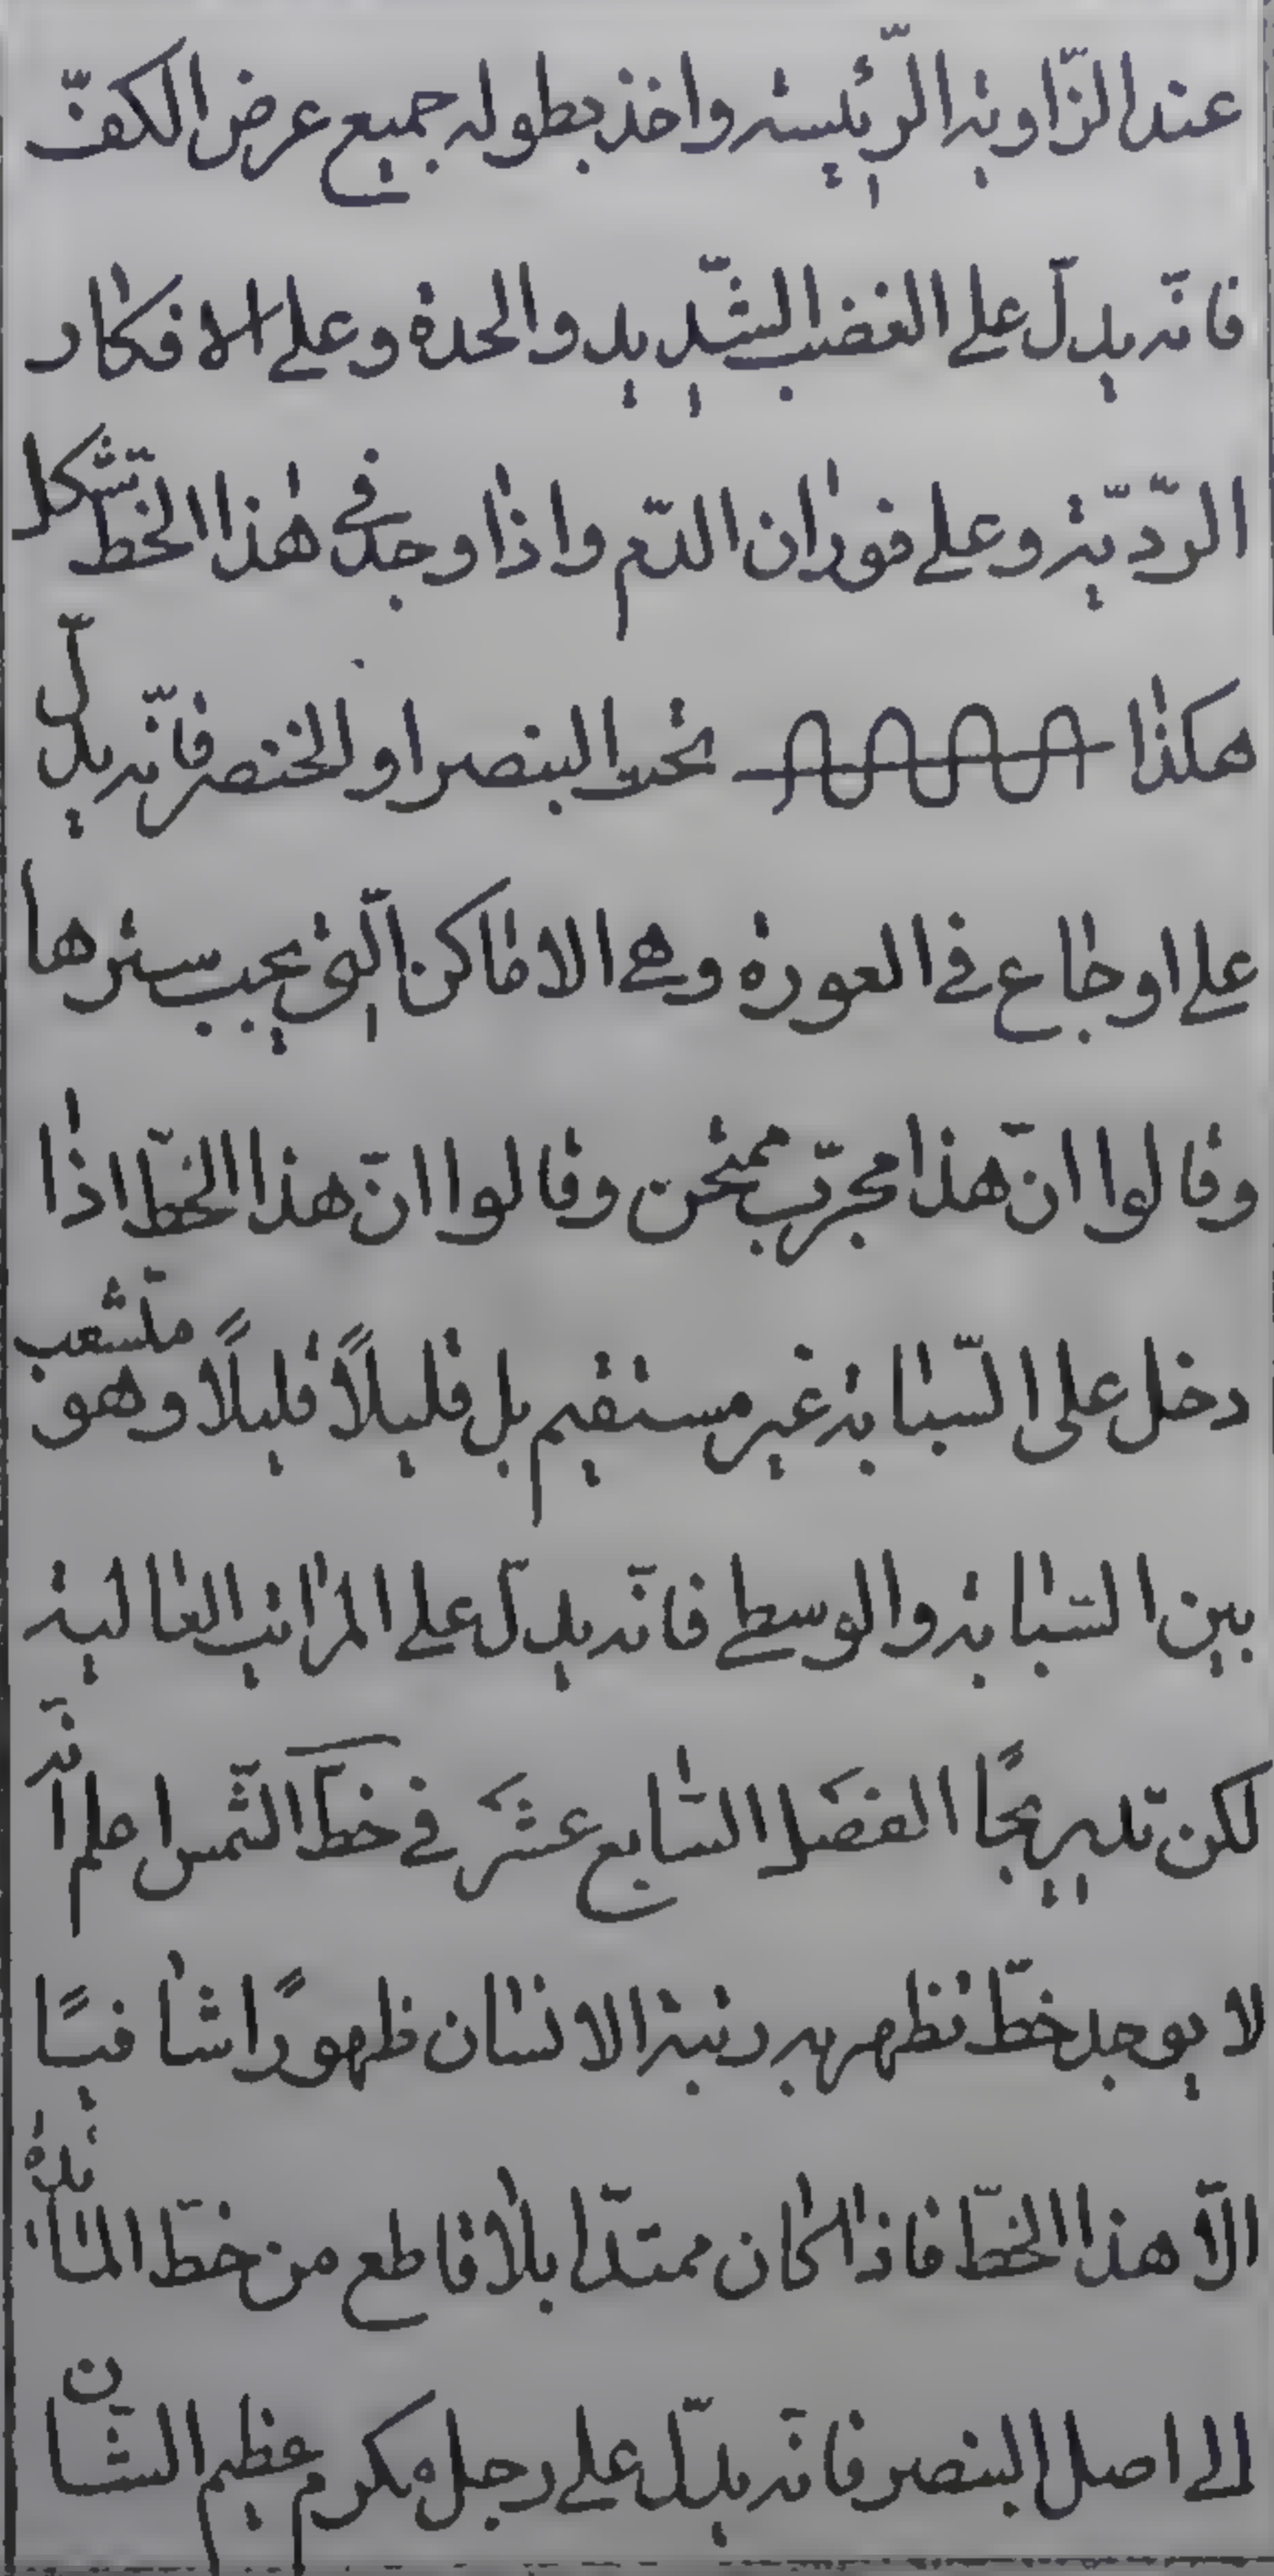 عند الزّاوية الرّئيسة واخذ بطوله جميع عرض الكفّ
فانّه يدلّ على الغضب الشّديد والحدة وعلى الافكار
الرّديّة وعلى فوران الدّم واذا وجد في هذا الخط تشكل
هكذا تحت البنصر او الخنصر فانّه يدلّ
على اوجاع في العورة وهي الاماكن الّتي يجب سترها
وقالوا انّ هذا مجرّب ممتحن وقالوا انّ هذا الخطّ اذا
دخل على السّبابة غير مستقيم بل قليلاً قليلاً وهو متشعب
بين السّبابة والوسطى فانّه يدلّ على المراتب العالية
لكن تدريجًا الفصَل السّابع عشَر في خطّ الشّمس اعلم انّه
لا يوجد خطّ تظهر به رتبة الانسان ظهورًا شافيًا
الّا هذا الخطّ فاذا كان ممتدّا بلا قاطع من خطّ المائدة
الى اصل البنصر فانّه يدلّ على رجل مكرم عظيم الشّان